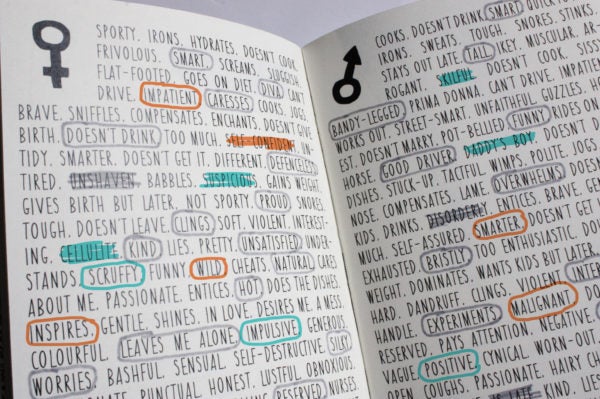 SPORTY. IRONS. HYDRATES. DOESN'T COOK.
FRIVOLOUS. SMART. SCREAMS. SLUGGISH.
FLAT-FOOTED. GOES ON DIET. DIVA. CAN'T
DRIVE. IMPATIENT. CARESSES. COOKS. JOGS.
BRAVE. SNIFFLES. COMPENSATES. ENCHANTS. DOESN'T GIVE
BIRTH. DOESN'T DRINK TOO MUCH. SELF CONFIDENT. UN-
TIDY. SMARTER. DOESN'T GET IT. DIFFERENT. DEFENCELESS.
TIRED. UNSHAVEN. BABBLES. SUSPICIOUS. GAINS WEIGHT.
GIVES BIRTH BUT LATER. NOT SPORTY. PROUD. SNORES.
TOUGH. DOESN'T LEAVE. CLINGS. SOFT. VIOLENT. INTEREST-
ING. CELLULITE. KIND. LIES. PRETTY. UNSATISFIED. UNDER-
STANDS. SCRUFFY. FUNNY. WILD. CHEATS. NATURAL. CARES
ABOUT ME. PASSIONATE. ENTICES. HOT. DOES THE DISHES.
INSPIRES. GENTLE. SHINES. IN LOVE. DESIRES ME. A MESS.
COLOURFUL. LEAVES ME ALONE. IMPULSIVE. GENEROUS.
WORRIES. BASHFUL. SENSUAL. SELF-DESTRUCTIVE. SILKY.
PUNCTUAL. HONEST. LUSTFUL. OBNOXIOUS.
RESERVED. NURSES.
COOKS. DOESN'T DRINK. SMART.
IRONS. SWEATS. TOUGH. SNORES. STINKS.
STAYS OUT LATE. TALL. MUSCULAR. AR-
ROGANT. SKILFUL.
BANDY-LEGGED. PRIMA DONNA. CAN'T DRIVE. IMPATIENT.
WORKS OUT. STREET-SMART. UNFAITHFUL. GUZZLES.
EST. DOESN'T MARRY. POT-BELLIED. FUNNY. RIDES ON
HORSE. GOOD DRIVER. DADDY'S BOY. DOESN'T
DISHES. STUCK-UP. TACTFUL. WIMPS. POLITE. JOGS.
NOSE. COMPENSATES. LAME. OVERWHELMS. DOESN'T
KIDS. DRINKS. DISORDERLY. ENTICES. BRAVE. GEN
MUCH. SELF-ASSURED. SMARTER. DOESN'T GET
EXHAUSTED. BRISTLY. TOO ENTHUSIASTIC.
WEIGHT. DOMINATES. WANTS KIDS BUT LATER.
HARD. DANDRUFF. CLINGS. VIOLENT. INTER
HANDLE. EXPERIMENTS. MALIGNANT.
RESERVED. PAYS ATTENTION. NEGATIVE.
VAGUE. POSITIVE. CYNICAL. WORN-OUT.
OPEN. COUGHS. PASSIONATE. HAIRY
LATE. KIND.